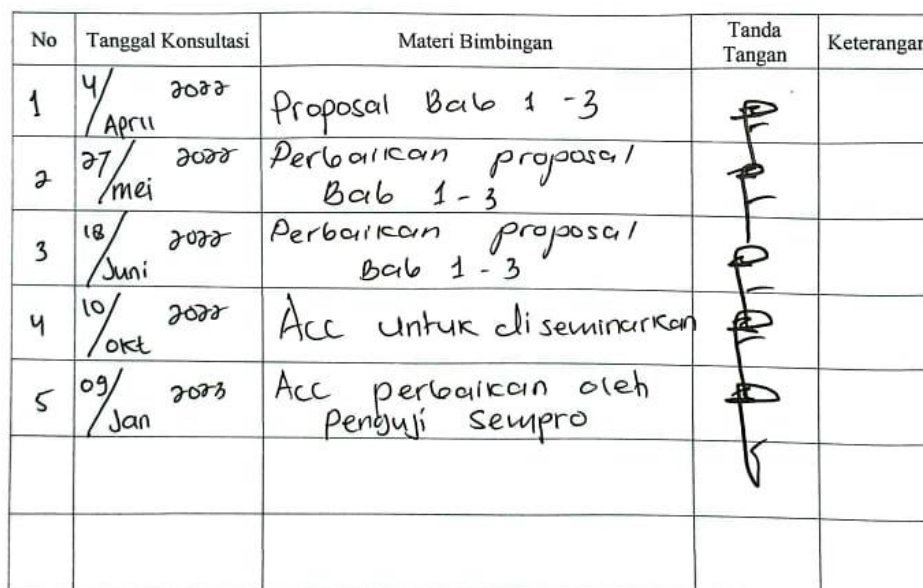 No Tanggal Konsultasi Materi Bimbingan Tanda Tangan Keterangan
1 4/April 2022 Proposal Bab 1 - 3
2 27/mei 2022 Perbaikan proposal
Bab 1 - 3
3 18/Juni 2022 Perbaikan proposal
Bab 1 - 3
4 10/okt 2022 Acc untuk diseminarkan
5 09/Jan 2023 Acc perbaikan oleh
Penguji Sempro